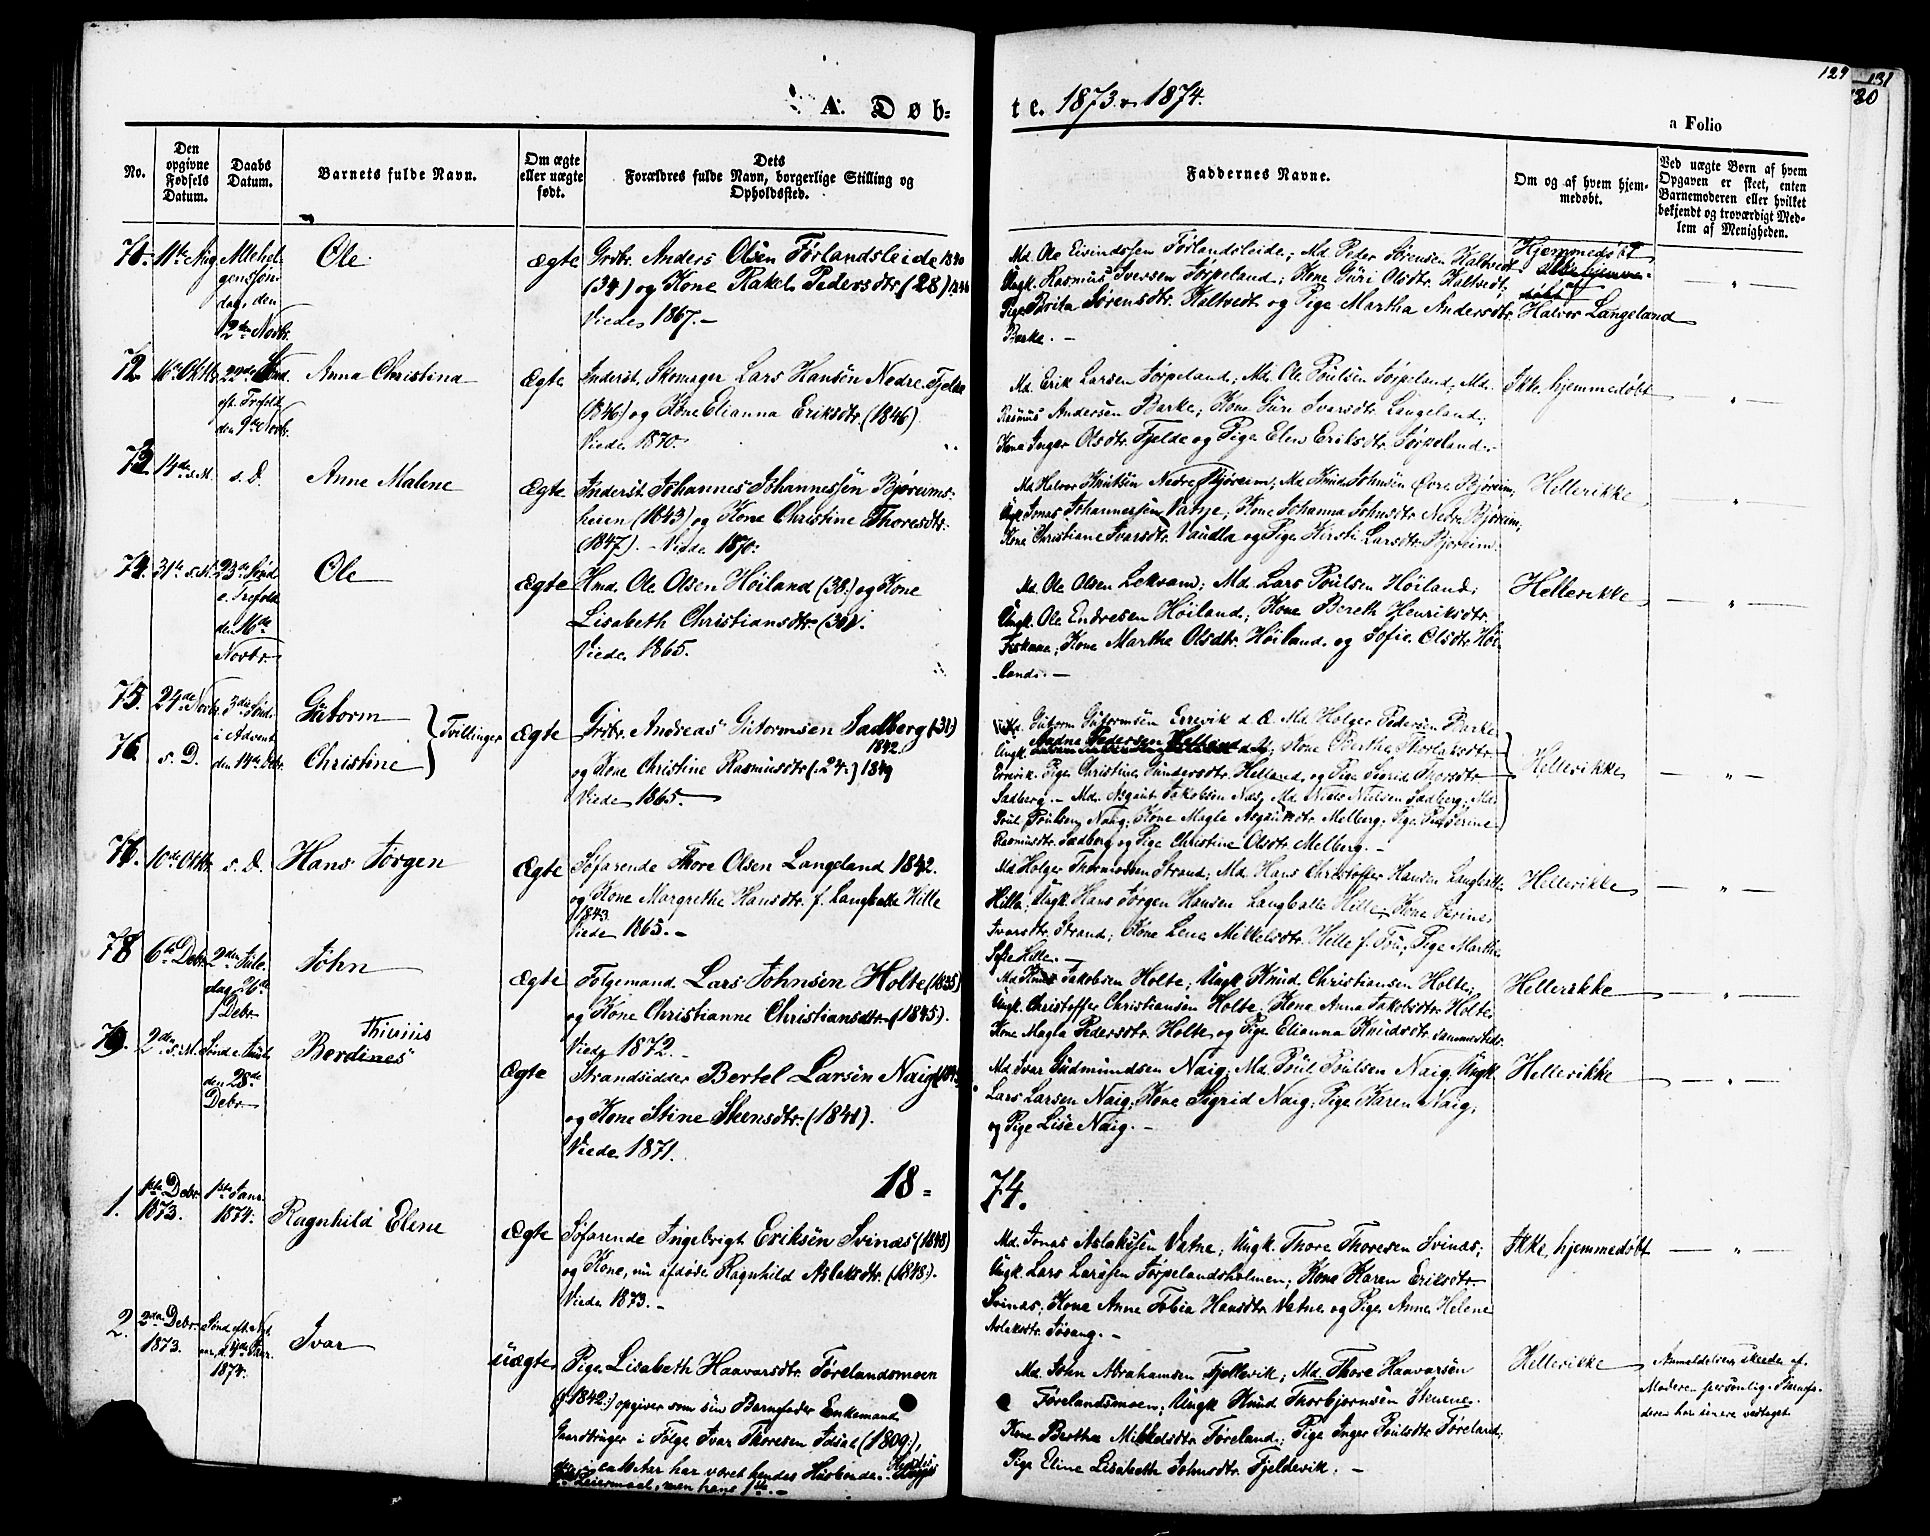 129 131
130
A. Døb= te. 1873 & 1874.
a Folio
No.
Den opgivne Fødsels Datum.
Daabs Datum.
Barnets fulde Navn.
Om ægte eller uægte født.
Dets Forældres fulde Navn, borgerlige Stilling og Opholdssted.
Faddernes Navne.
Om og af hvem hjemmedøbt.
Ved uægte Børn af hvem Opgaven er skeet, enten Barnemoderen eller hvilket bekjendt og troværdigt Medlem af Menigheden.
71. 11te Aug.
Allehelgensøndag, den 12de Novbr.
Ole
Ægte
Grdbr. Anders Olsen Førlandsleide 1840
(34) og Kone Rakel Pedersdtr. (28)
Viede 1867. —
Md. Ole Eivindssen Førlandsleide; Md Peder Sørensen Kaltvedt
Ungk. Rasmus Iversen Jørpeland; Kone Guri Olsdtr. Kaltvedt;
Pige Brita Sørensdtr. Kaltvedt og Pige Martha Andersdtr.
Barke. —
Hjemmedøbt
af
Halvor Langeland
— " —
72. 16de Oktbr.
22de Sønd. eft. Trefold. den 9de Novbr.
Anna Christina
Ægte
Inderst, Skomager Lars Hansen Nedre Fjelde
(1846) og Kone Elianna Eriksdtr. (1846)
Viede 1870.
Md. Erik Larsen Jørpeland; Md. Ole Poulsen Jørpeland; Md.
Rasmus Andersen Barke; Kone Guri Ivarsdtr. Langeland;
Kone Inger Olsdtr. Fjelde og Pige Elen Eriksdtr. Jørpeland.
Ikke hjemmedøbt
— " —
73. 14de s. M.
s. D.
Anne Malene
Ægte
Inderst Johannes Johannessen Bjøreims-
heien (1843) og Kone Christine Thoresdtr.
(1847). — Viede 1870.
Md Halvor Knutsen Nedre Bjøreim; Md Knud Johnsen Øvre Bjøreim;
Ungk. Jonas Johannessen Vatne; Kone Johanna Johnsdtr Nedre Bjøreim;
Kone Christiane Ivarsdtr. Vaudla og Pige Kirsti Larsdtr Bjøreim.
Hellerikke
— " —
74. 31te s. M.
23de Sønd e. Trefold. den 16de Novbr.
Ole
Ægte
Hmd. Ole Olsen Høiland (38) og Kone
Lisabeth Christiansdtr.
Viede 1865.
Md. Ole Olsen Lekvam; Md. Lars Poulsen Høiland;
Ungk. Ole Endresen Høiland; Kone Bereth Henriksdtr.
Kone Martha Olsdtr. Høiland og Sofie Olsdtr. Høi-
land. —
Hellerikke
— " —
75. 24de Novbr.
3die Sønd. i Advent den 14de Debr.
Gutorm
76. s. D.
Christine
Tvillinger
Ægte
Grdbr. Andreas Gutormsen Sadberg (31)
1842
og Kone Christine Rasmusdtr. (24) 1849
Viede 1865. —
Gutorm Gutormsen Errevik d. Æ. Md. Holger Pedersen Barke
Ungk. Kone Berthe Thorlaksdtr.
Errevik. Pige Christine Gundersdtr. Helland, og Pige Sigrid Thorsdtr
Sadberg. — Md. Asgaut Jakobsen Næs, Md. Niels Nielsen Sadberg; Md.
Poul Poulsen Naig; Kone Magle Asgautsdtr. Melberg; Pige Serine
Rasmusdtr. Sadberg og Pige Christine Olsdtr. Melberg. —
Hellerikke
— " —
77. 10de Oktbr.
s. D.
Hans Jørgen
Ægte
Søfarende Thore Olsen Langeland 1842.
og Kone Margrethe Hansdtr. f. Langballe Hille
1843
Viede 1865. —
Md Holger Thormodsen Strand; Md. Hans Christoffer Hansen Langballe
Hille; Ungk. Hans Jørgen Hansen Langballe Hille; Kone Serine
Ivarsdtr. Strand; Kone Lene Mikkelsdtr. Hille f. Tou; Pige Marthe
Sofie Hille. —
Hellerikke
— " —
78. 6te Debr.
2den Juledag 26de Debr.
John
Ægte
Følgemand Lars Johnsen Holte (1835)
og Kone Christianne Christiansdtr. (1845).
Viede 1872. —
Md Jakobsen Holte; Ungk Knud Christiansen Holte;
Ungk. Christoffer Christiansen Holte; Kone Anna Jakobsdtr. Holte;
Kone Magla Pedersdtr. Holte og Pige Elianna Knudsdtr. sammesteds.
Hellerikke
— " —
79. 2den s. M.
Sønd. e. Juul, den 28de Debr.
Berdines
Ægte
Strandsidder Bertel Larsen Naig
og Kone Stine Stensdtr. (1841).
Viede 1871.
Md Ivar Gudmundsen Naig; Md. Poul Poulsen Naig; Ungk.
Lars Larsen Naig; Kone Sigrid Naig; Pige Karen Naig;
og Pige Lise Naig. —
Hellerikke
— " —
18 = 74.
1. 1ste Debr. 1873.
1ste Janr. 1874.
Ragnhild Elene
Ægte
Søfarende Ingebrigt Eriksen Svinæs (1848)
og Kone, nu afdøde Ragnhild Aslaksdtr. (1848).
Viede 1873. —
Md. Jonas Aslaksen Vatne; Ungk. Thore Thoresen Svinæs;
Ungk. Lars Larssen Jørpelandsholmen; Kone Karen Eriksdtr.
Svinæs; Kone Anne Tobia Hansdtr. Vatne og Pige Anne Helene
Aslaksdtr. Jøsang. —
Ikke hjemmedøbt
— " —
2. 2den Debr. 1873.
Sønd. eft. Nytaar, d. 4de Janr. 1874.
Ivar
Uægte
Pige Lisabeth Haavarsdtr. Førelandsmoen
(1842) opgiver som sin Barnefader Enkemand
Gaardbruger i Følge Ivar Thoresen Idsal (1809),
har været hendes Husbonde.
Leiermaal, men hans 1ste. —
Md. John Abrahamsen Fjellevik; Md. Thore Haavarsen
Førelandsmoen; Ungk Knud Thorbjørnsen Stenene.
Kone Bertha Mikkelsdtr. Føreland; Pige Inger Poulsdtr Føreland;
Pige Eline Lisabeth Johnsdtr. Fjeldevik. —
Hellerikke
Anmeldelsen skeede af
Moderen personlig. Barnefa-
deren har senere vedtaget